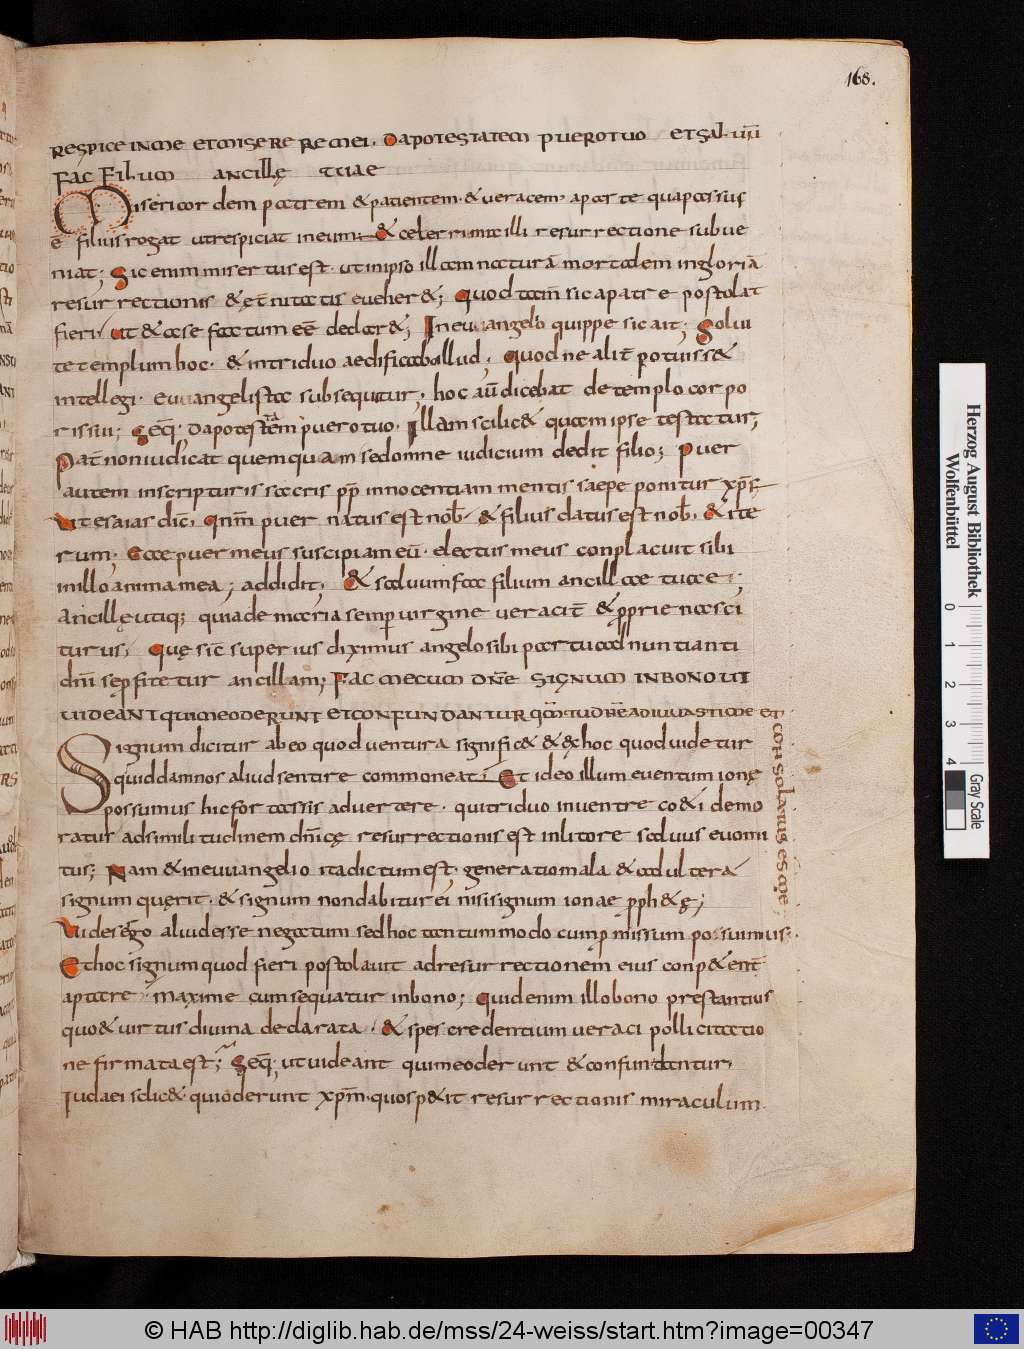 168.
RESPICE INME ETMISERE RE MEI, DAPOTESTATEM PUEROTUO ETSAL·UŪ
FAC FILIUM ANCILLĘ TUAE
Misericordem patrem & patientem· & veracem, aparte quapassuſ
ē filiusrogat utrespiciat ineum; & celerrimae illi resurrectione subue
niat; Sic enim misertusest· utinipso illam naturā mortalem ingloriā
resurrectionis & ęt̄nitatis eueher&; Quod tam̄ sic apatre postolat
fieri ut & aese factum eē declar&; Ineuuangelio quippe sic ait; Solui
te templumhoc· & intriduo aedificaboillud, Quod ne alit̄ potuiss&
intellegi· euuangelista subsequitur, hoc aūdicebat detemplo corpo
rissui; Seq̄· dapotestatēm puerotuo· Illam scilic& quam ipse testatur,
Pat̄ noniudicat quemquam sedomne iudicium dedit filio; Puer
autem inscripturis sacris pp̄ innocentiam mentis saepe ponitur xp̄s
Ut esaias dic̄, Qnm̄ puer natus est nob̄· & filius datus est nob̄, & ite
rum· Ecce puer meus suscipiam eū· electus meus conplacuit sibi
inillo anima mea; addidit, & saluumfac filium ancillae tuae;
Ancillę utiq; quiade maria semp uirgine veracit̄ & pprie nasci
turus, Quę sic̄ superius diximus angelo sibi partu adnuntianti
dn̄i sę pfitetur ancillam; FAC MECUM DN̄E SIGNUM INBONO UT
UIDEANT QUIMEODERUNT ETCONFUNDANTUR QM̄TUDN̄EADIUUASTIME ET
CONSOLATUSESME;
Signum dicitur abeo quod uentura signific& & ęhoc quod uidetur
quiddamnos aliudsentire commoneat; Et ideo illum euentum ionę
possumus hicfortassis advertere· quitriduo inuentre coeti demo
ratur adsimilitudinem dn̄icę resurrectionis est inlitore saluus euomi
tus; Nam & ineuuangelio itadictumest· generatiomala & adultera
signum quęrit· & signum nondabiturei nisisignum ionae pph&ę;
Uides ergo aliudesse negatum sedhoc tantummodo cum pmissum possumus·
Ethoc signum quod fieri postolauit adresurrectionem eius conp&ent̄
aptare· maxime cum sequatur inbono; Quidenim illobono prestantius
quo& uirtus diuina declarata· & spes credentium ueraci pollicitatio
ne firmataest; Seq̄· utuideant quimeoderunt & confundantur,
Iudaei scilic& quioderunt xp̄m· quosp&it resurrectionis miraculum·
Herzog August Bibliothek
Wolfenbüttel
0 1 2 3 4
Gray Scale
© HAB http://diglib.hab.de/mss/24-weiss/start.htm?image=00347